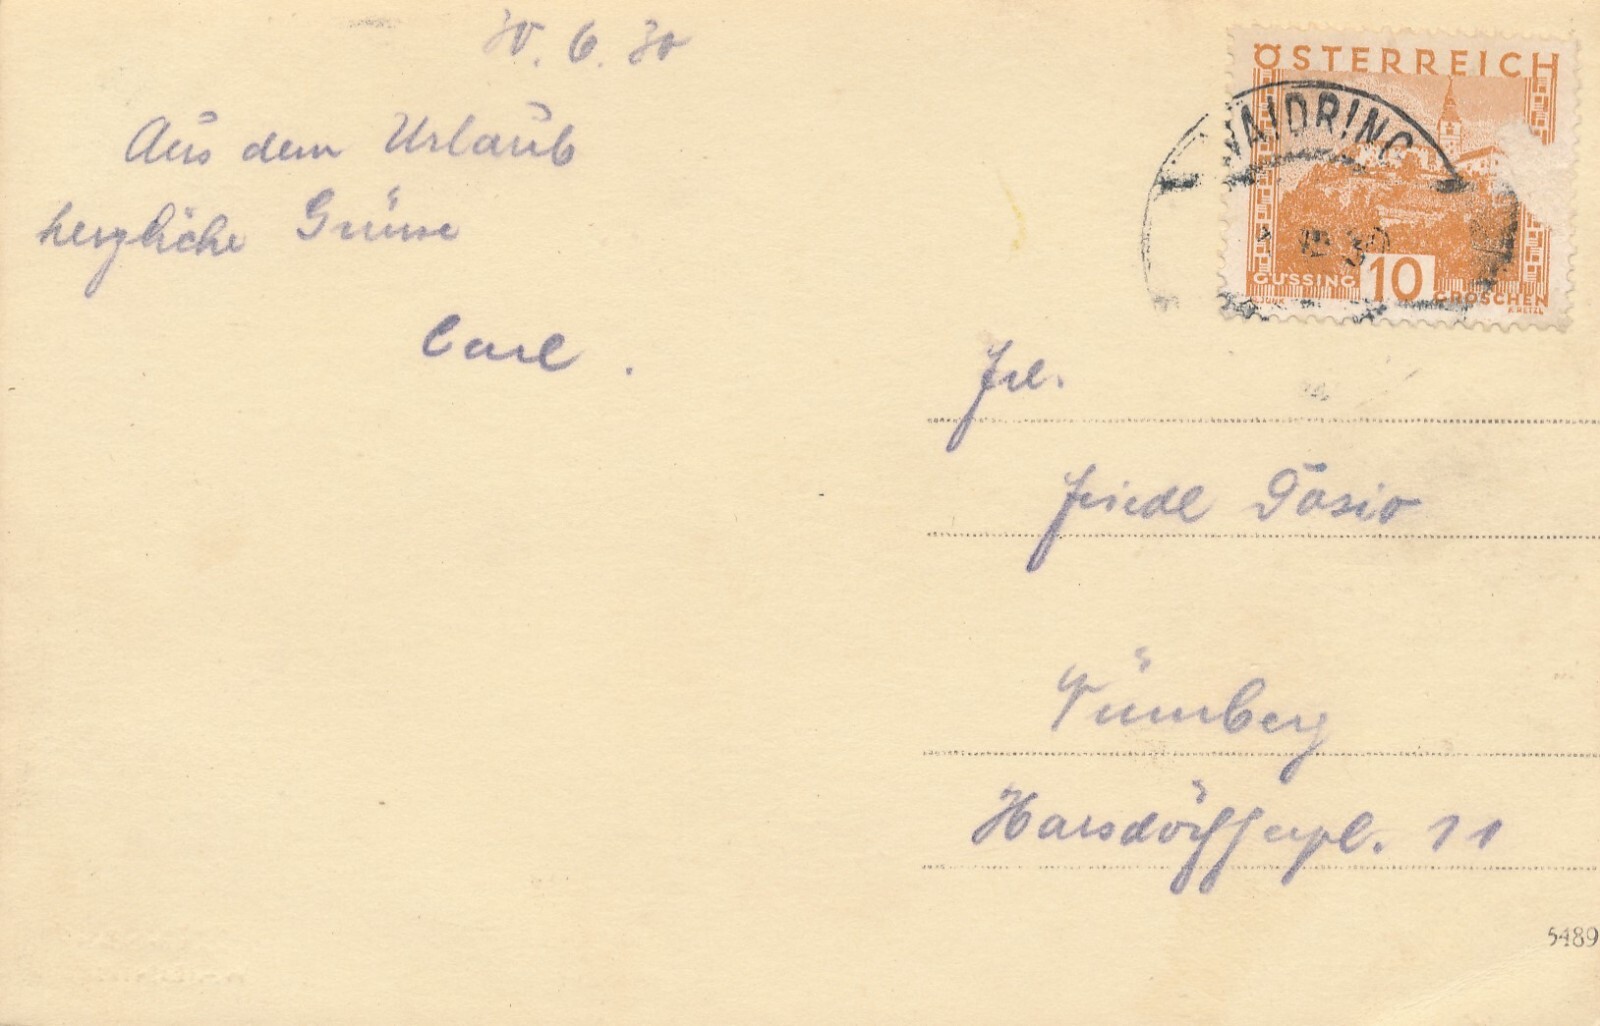 30. 6. 30
Aus dem Urlaub
herzliche Grüsse
Carl.
ÖSTERREICH
WAIDRING
30
GÜSSING 10 GROSCHEN
Frl.
Friedl
Nürnberg
Harsdörfferpl. 11
5489